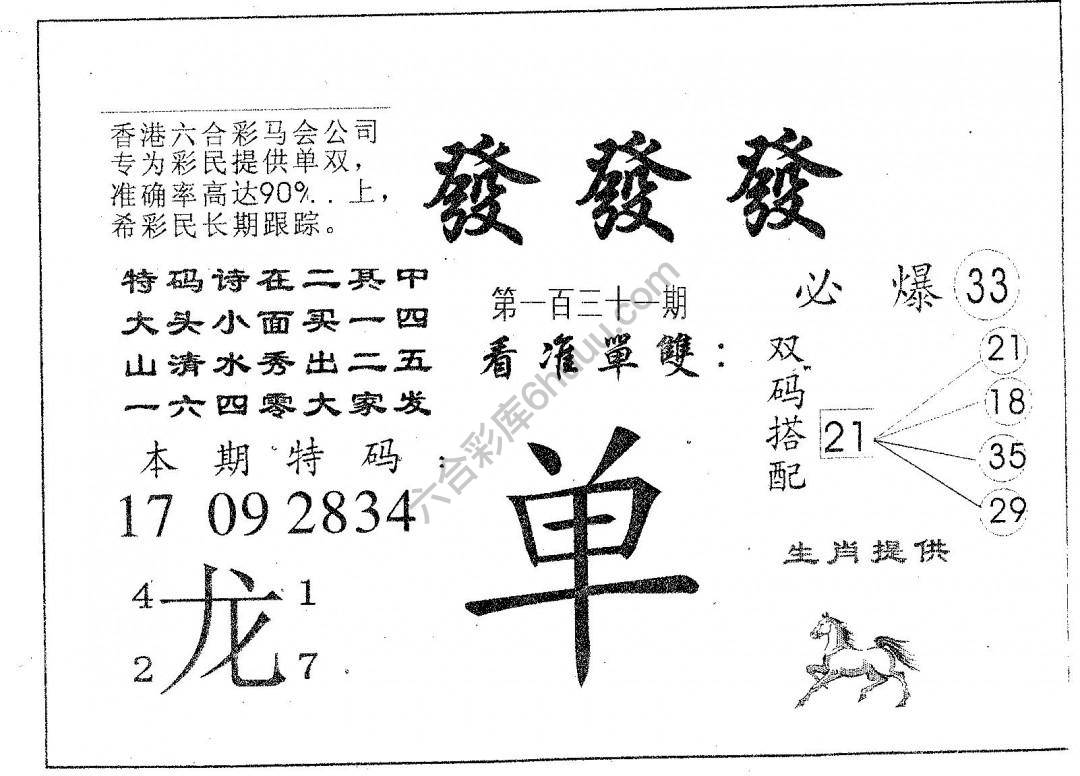 香港六合彩马会公司
专为彩民提供单双，
准确率高达90%..上，
希彩民长期跟踪。
發發發
特码诗在二其中
大头小面买一四
山清水秀出二五
一六四零大家发
第一百三十一期
看准單雙：
必爆 33
双码搭配
21
21
18
35
29
本期特码：
17 09 28 34
单
生肖提供
4 龙 1
2 7
六合彩库6huuu.com